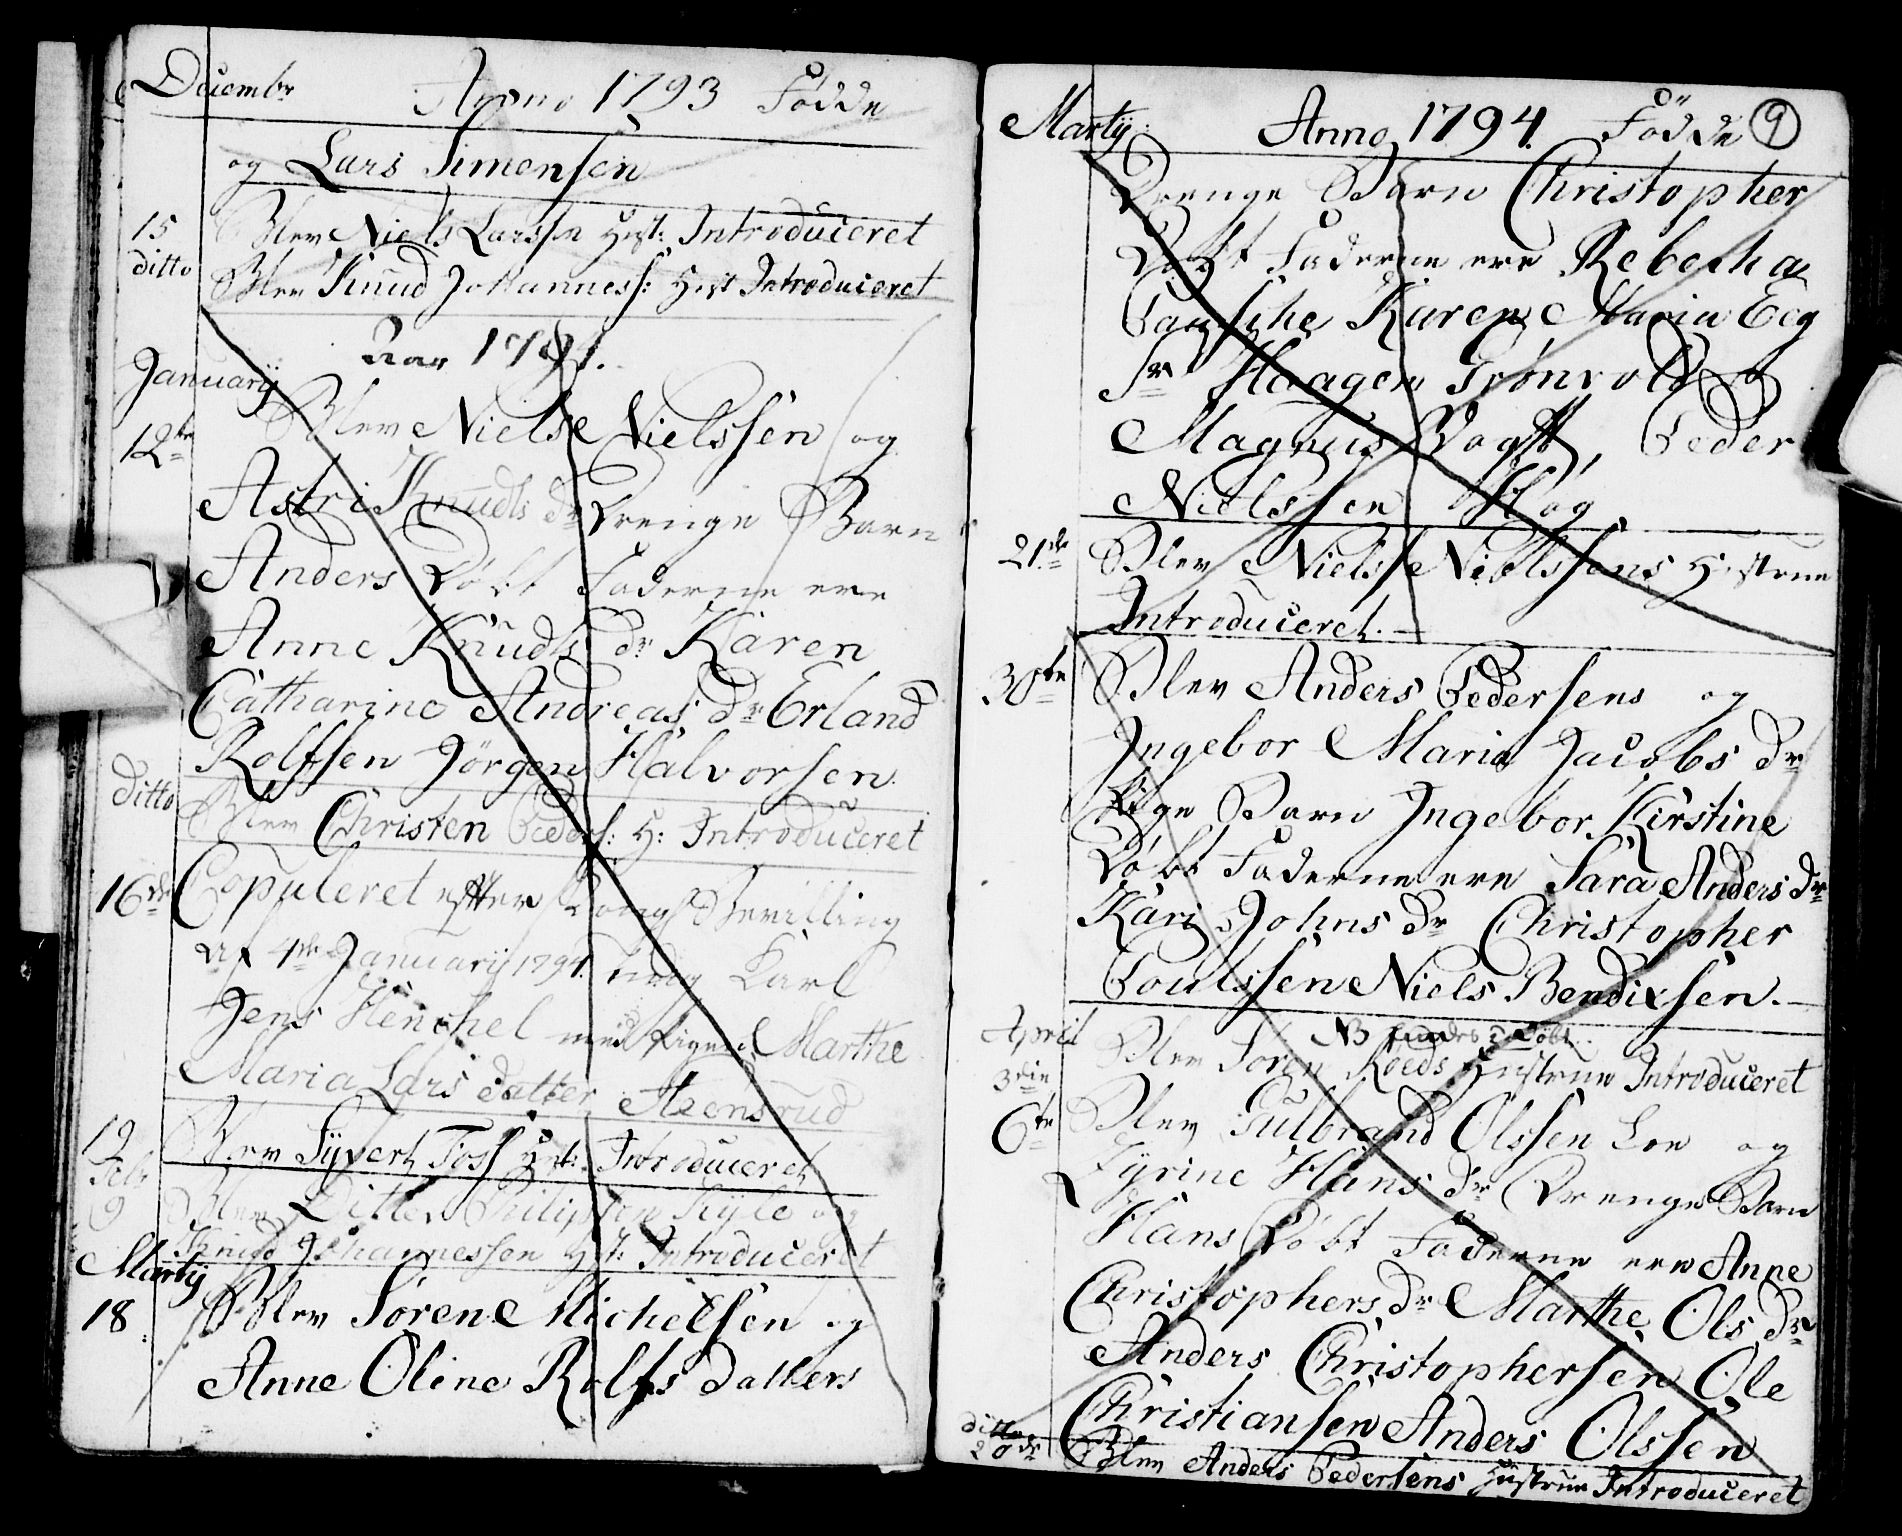 Decembr Anno 1793 Födde
og Lars Simensen
15 Blev Niels Larssen Hust: Introduceret
ditto Blev Knud Johanness: Hust Introduceret
Aar 1794.
January
12te Blev Niels Nielssen og
Astri Knuds dr Drenge Barn
Anders Döbt Faderne ere
Anne Knuds dr Karen
Catharine Andreas dr Erland
Rolfsen Jörgen Halvorsen
Ditto Blev Christen Peders: H: Introduceret
16de Copuleret efter Kongs Bevilling
af 4de January 1794. ung Karl
Jens Henchel med Pigen Marthe
Maria Lars datter Asensrud
19 Blev Syvert Foss Hust: Introduceret
Feb:
9 Blev Ditlev Philipsen og
Knud Johannessen Hst: Introduceret
Martij
18 Blev Sören Michelsen og
Anne Oline Rolfs datters
Martij Anno 1794. Födde 9
Drenge Barn Christopher
Döbt Faderne ere Rebecha
Karen Maria Eeg
Sr Haagen Grönvold
Magnus Vogtt, Peder
Nielssen Hög
21de Blev Niels Nielssens Hustrue
Introduceret.
30te Blev Anders Pedersens og
Ingebor Maria Jacobs dr
Pige Barn Ingebor Kirstine
Döbt Faderne ere Sara Anders dr
Kari Johns dr Christopher
Poulssen Niels Bendixsen.
April NB Döbt
3die Blev Sören Roeds Hustrue Introduceret
6te Blev Gulbrand Olssen Loe og
Kyrine Hans dr Drenge Barn
Hans Döbt Faderne ere Anne
Christophers dr Marthe Ols dr
Anders Christophersen Ole
Christiansen Anders Olssen
ditto
20de Blev Anders Pedersens Hustrue Introduceret